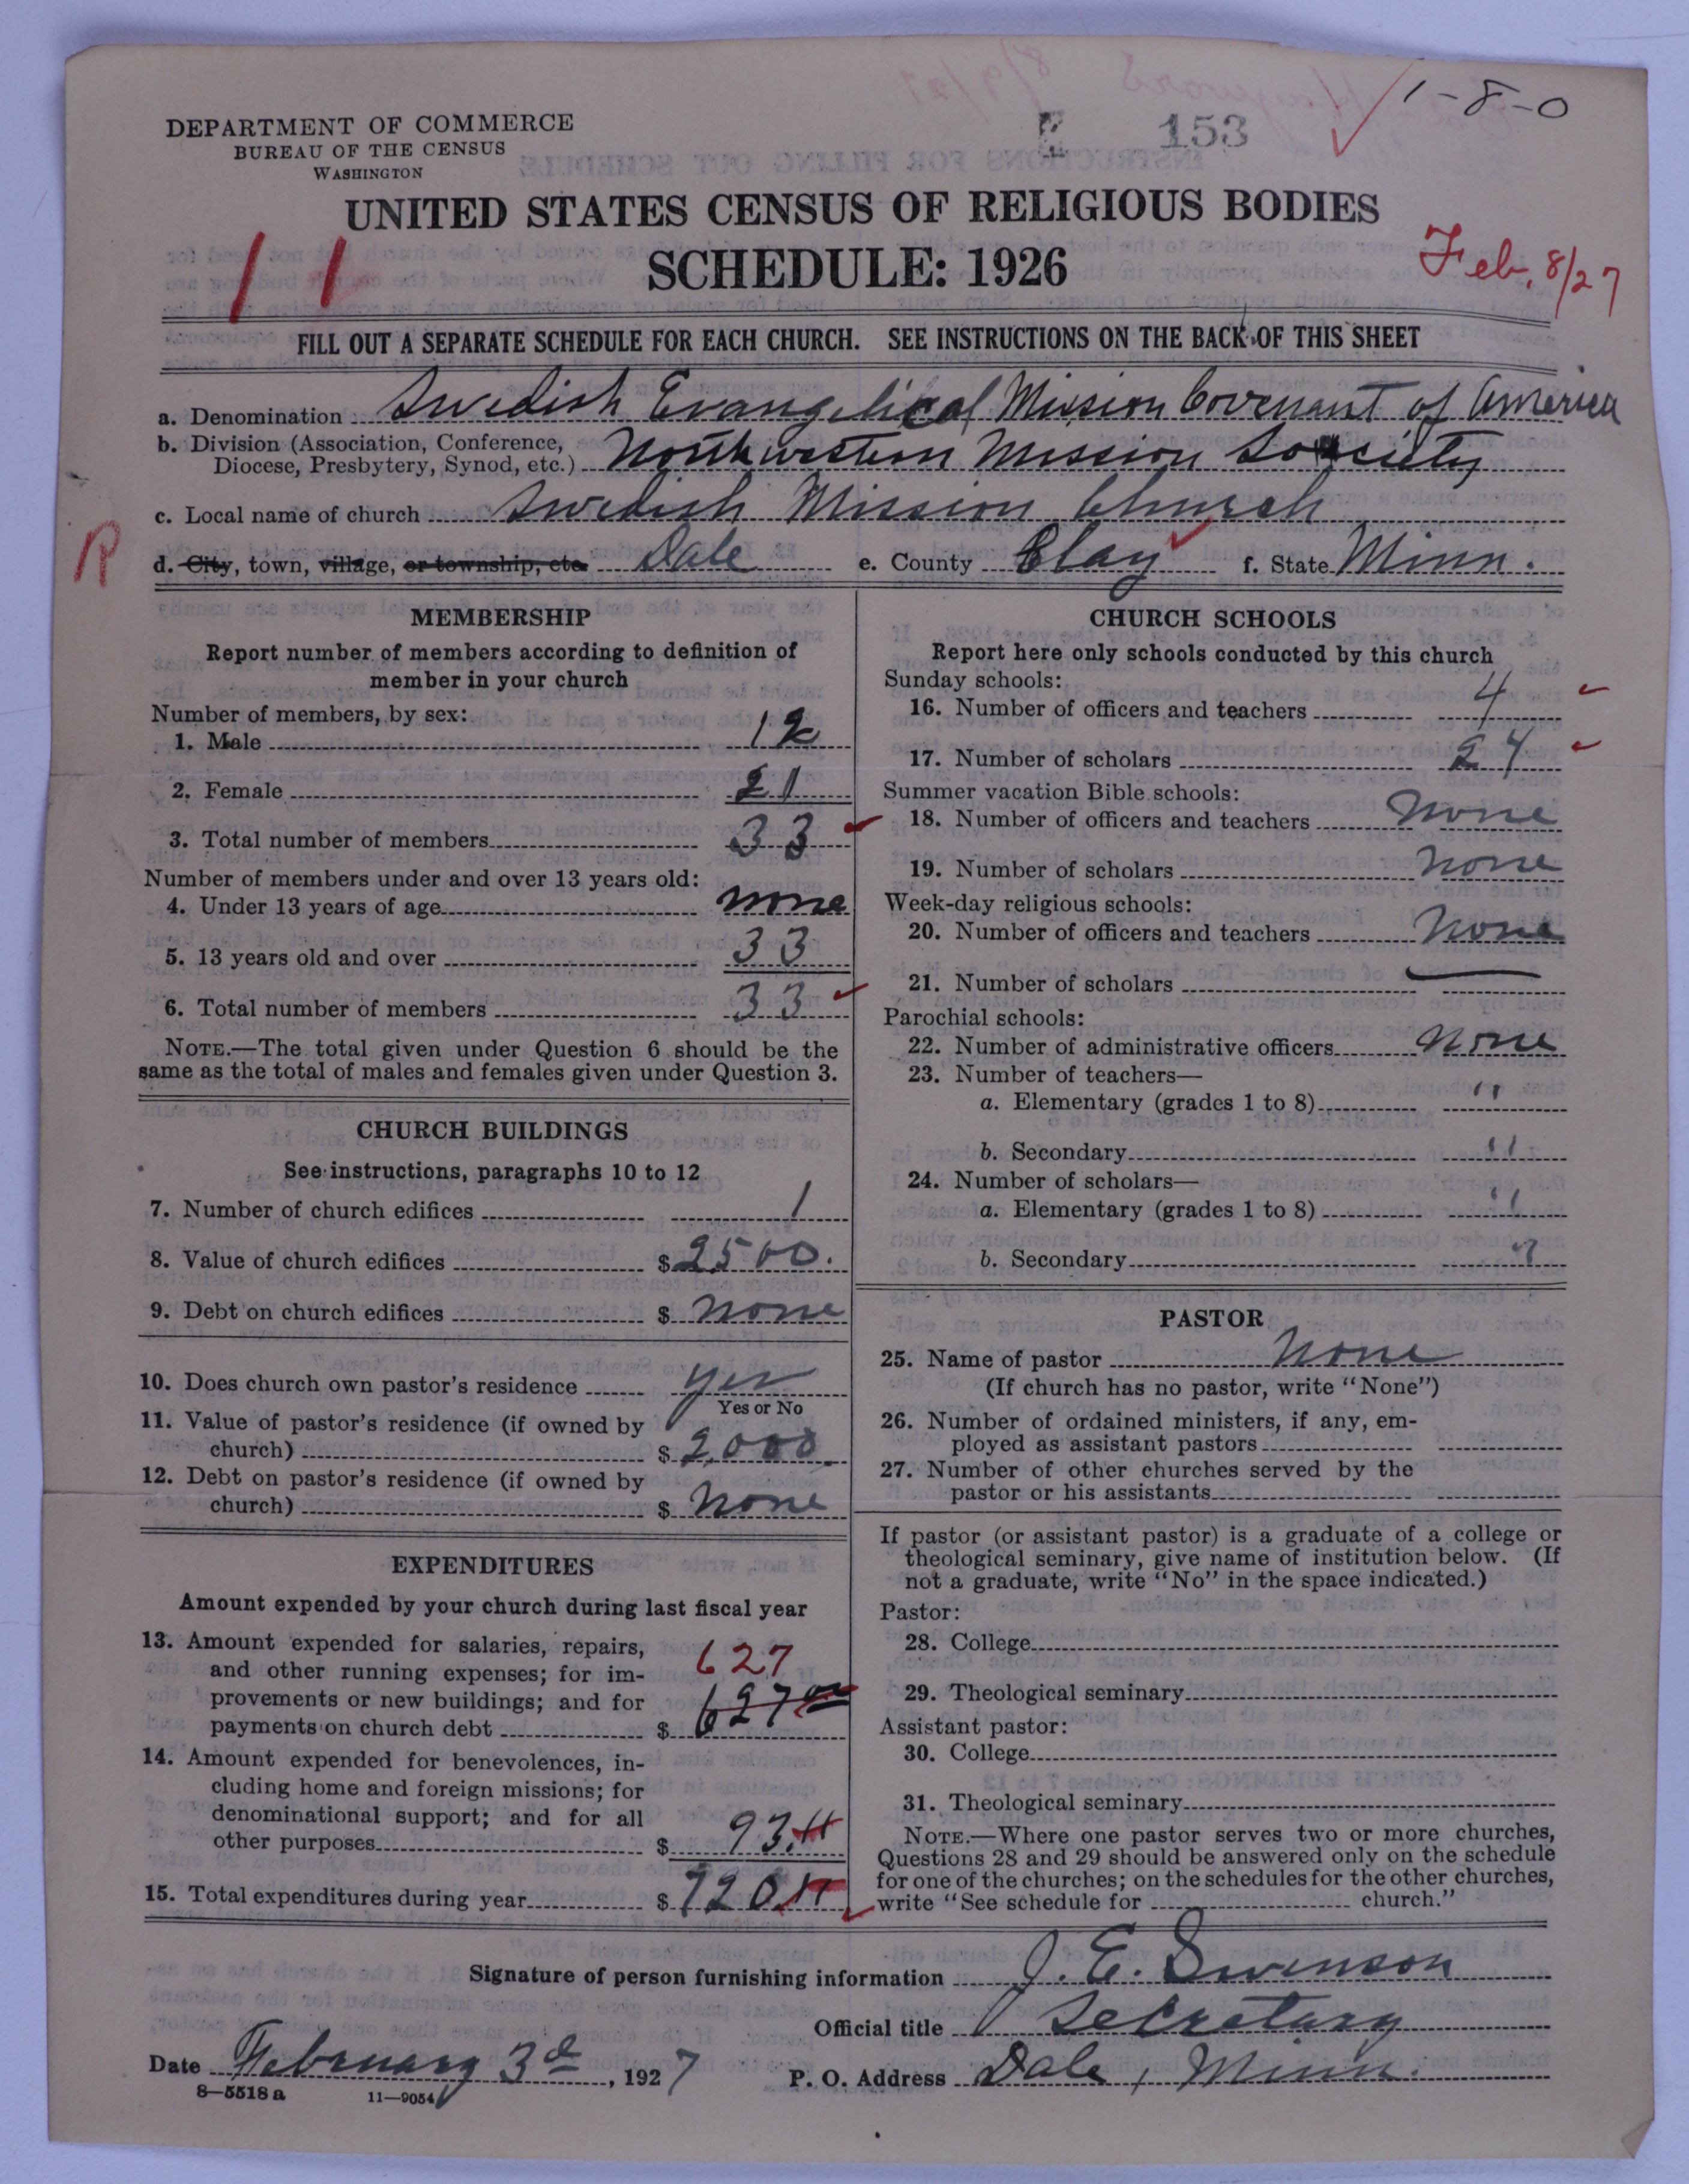 1-8-0
E 153
DEPARTMENT OF COMMERCE
BUREAU OF THE CENSUS
WASHINGTON
UNITED STATES CENSUS OF RELIGIOUS BODIES
11
SCHEDULE: 1926
Feb. 8/27
FILL OUT A SEPARATE SCHEDULE FOR EACH CHURCH. SEE INSTRUCTIONS ON THE BACK OF THIS SHEET
a. Denomination Swedish Evangelical Mission Covenant of America
b. Division (Association, Conference,
Diocese, Presbytery, Synod, etc.) Northwestern Mission Society
c. Local name of church Swedish Mission Church
R
d. City, town, village, or township, etc. Dale e. County Clay f. State Minn.
MEMBERSHIP
Report number of members according to definition of
member in your church
Number of members, by sex:
1. Male 12
2. Female 21
3. Total number of members 33
Number of members under and over 13 years old:
4. Under 13 years of age none
5. 13 years old and over 33
6. Total number of members 33
NOTE.—The total given under Question 6 should be the
same as the total of males and females given under Question 3.
CHURCH BUILDINGS
See instructions, paragraphs 10 to 12
7. Number of church edifices 1
8. Value of church edifices $2500.
9. Debt on church edifices $ none
10. Does church own pastor's residence yes
Yes or No
11. Value of pastor's residence (if owned by
church) $2,000.
12. Debt on pastor's residence (if owned by
church) $ none
EXPENDITURES
Amount expended by your church during last fiscal year
13. Amount expended for salaries, repairs,
and other running expenses; for im-
627
provements or new buildings; and for
payments on church debt $ 627 00
14. Amount expended for benevolences, in-
cluding home and foreign missions; for
denominational support; and for all
other purposes $ 93.11
15. Total expenditures during year $ 720.11
CHURCH SCHOOLS
Report here only schools conducted by this church
Sunday schools:
16. Number of officers and teachers 4
17. Number of scholars 24
Summer vacation Bible schools:
18. Number of officers and teachers none
19. Number of scholars none
Week-day religious schools:
20. Number of officers and teachers none
21. Number of scholars —
Parochial schools:
22. Number of administrative officers none
23. Number of teachers—
a. Elementary (grades 1 to 8) "
b. Secondary "
24. Number of scholars—
a. Elementary (grades 1 to 8) "
b. Secondary "
PASTOR
25. Name of pastor None
(If church has no pastor, write "None")
26. Number of ordained ministers, if any, em-
ployed as assistant pastors
27. Number of other churches served by the
pastor or his assistants
If pastor (or assistant pastor) is a graduate of a college or
theological seminary, give name of institution below. (If
not a graduate, write "No" in the space indicated.)
Pastor:
28. College
29. Theological seminary
Assistant pastor:
30. College
31. Theological seminary
NOTE.—Where one pastor serves two or more churches,
Questions 28 and 29 should be answered only on the schedule
for one of the churches; on the schedules for the other churches,
write "See schedule for church."
Signature of person furnishing information J. E. Swenson
Official title Secretary
Date February 3d, 1927 P. O. Address Dale, Minn.
8—5518a 11—9054